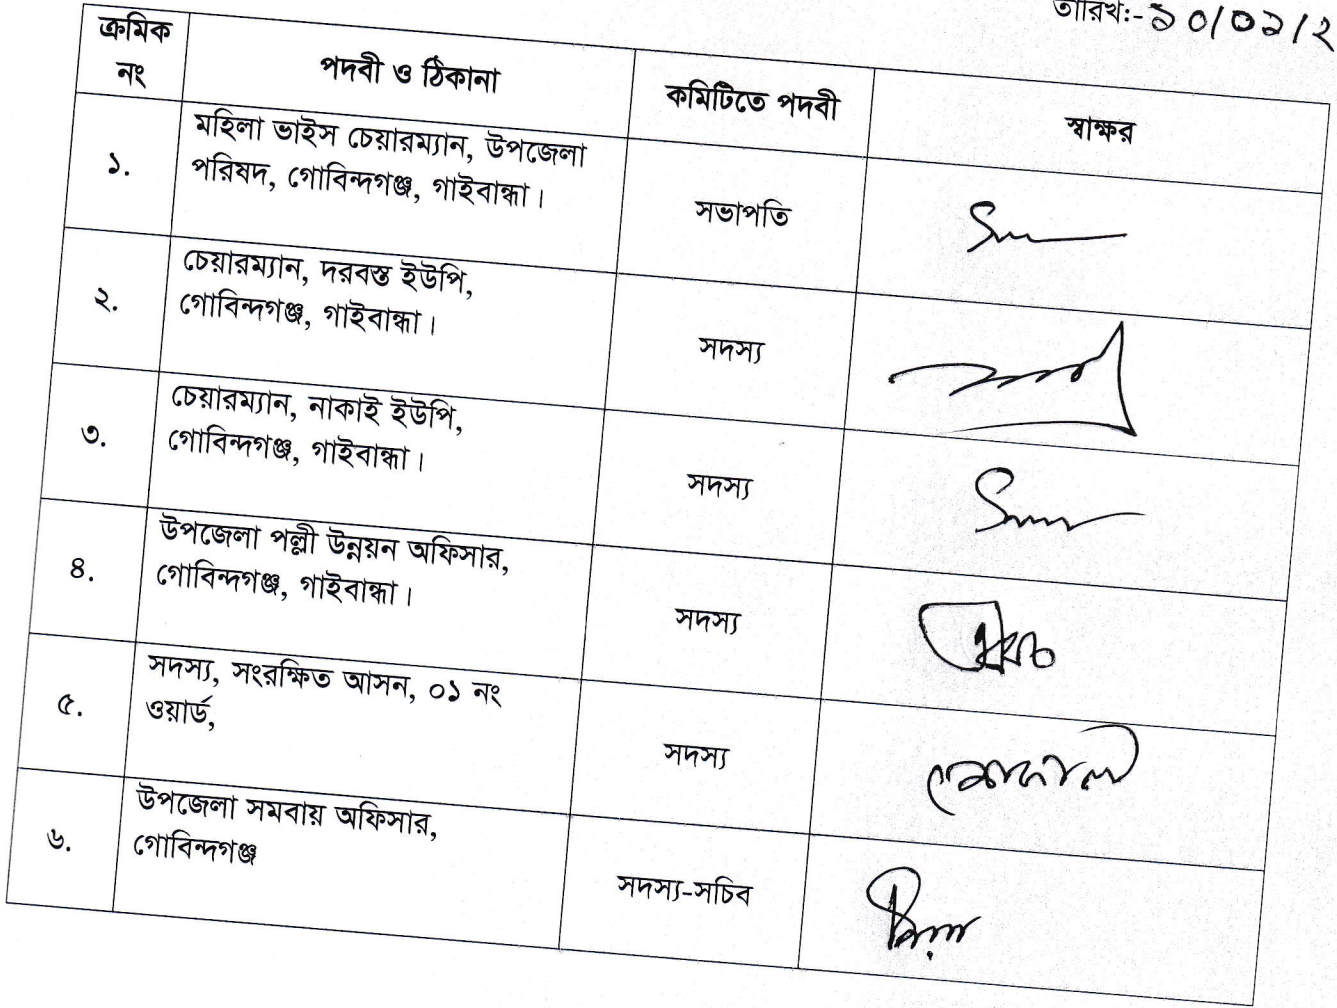 তারিখ:- ১০/০১/২
ক্রমিক নং
পদবী ও ঠিকানা
কমিটিতে পদবী
স্বাক্ষর
১.
মহিলা ভাইস চেয়ারম্যান, উপজেলা
পরিষদ, গোবিন্দগঞ্জ, গাইবান্ধা।
সভাপতি
২.
চেয়ারম্যান, দরবস্ত ইউপি,
গোবিন্দগঞ্জ, গাইবান্ধা।
সদস্য
৩.
চেয়ারম্যান, নাকাই ইউপি,
গোবিন্দগঞ্জ, গাইবান্ধা।
সদস্য
৪.
উপজেলা পল্লী উন্নয়ন অফিসার,
গোবিন্দগঞ্জ, গাইবান্ধা।
সদস্য
৫.
সদস্য, সংরক্ষিত আসন, ০১ নং
ওয়ার্ড,
সদস্য
৬.
উপজেলা সমবায় অফিসার,
গোবিন্দগঞ্জ
সদস্য-সচিব